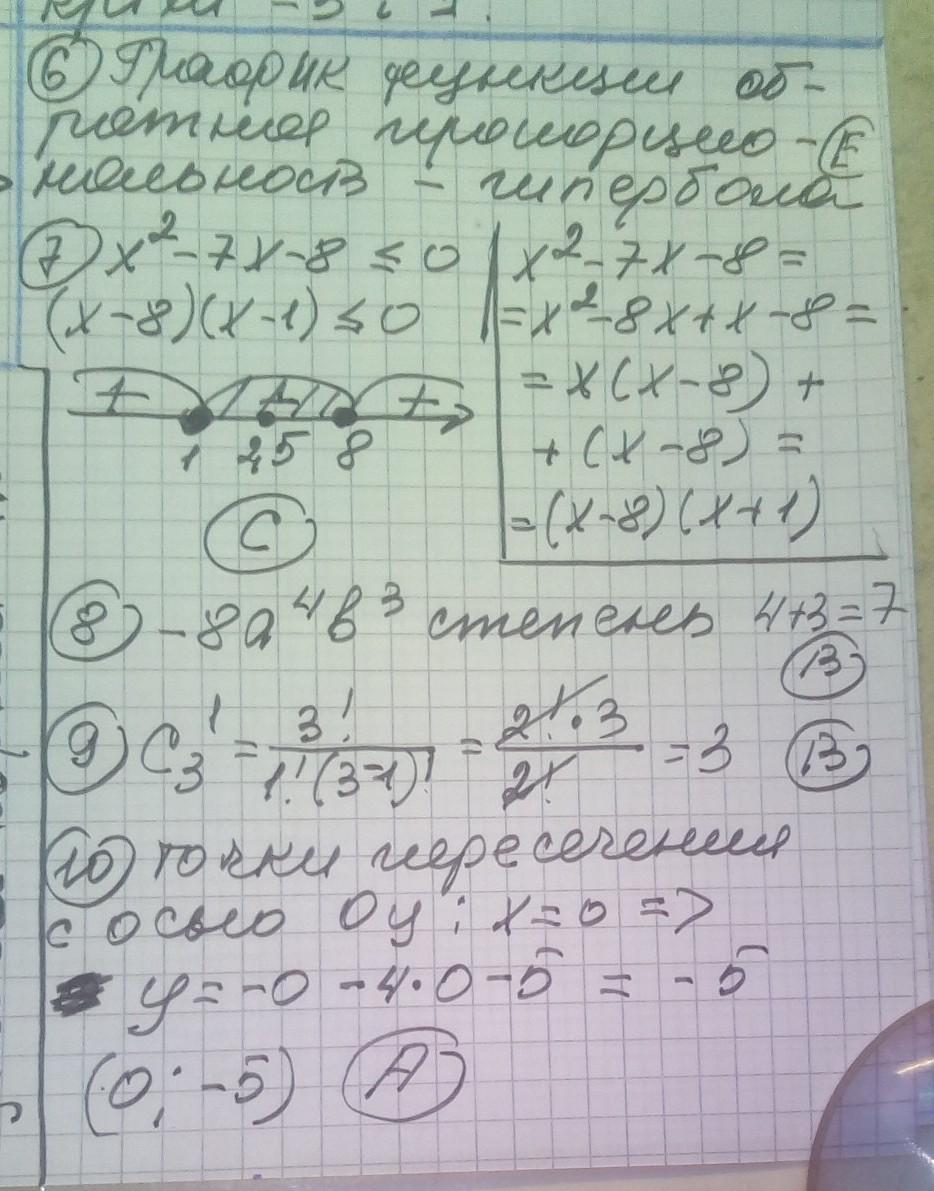 ⑥ График функции об-
ратная пропорцио-
нальность - гипербола Ⓔ
⑦ x² - 7x - 8 ≤ 0
(x-8)(x-1) ≤ 0
+ + +
1 2,5 8
Ⓒ
x² - 7x - 8 =
= x² - 8x + x - 8 =
= x(x-8) +
+ (x-8) =
= (x-8)(x+1)
⑧ -8a⁴b³ степень 4+3=7
Ⓑ
⑨ C₃¹ = 3!/(1!(3-1)!) = (2!·3)/2! = 3 Ⓑ
⑩ точки пересечения
с осью Oy: x=0 =>
y = -0 - 4·0 - 5 = -5
(0; -5) Ⓐ